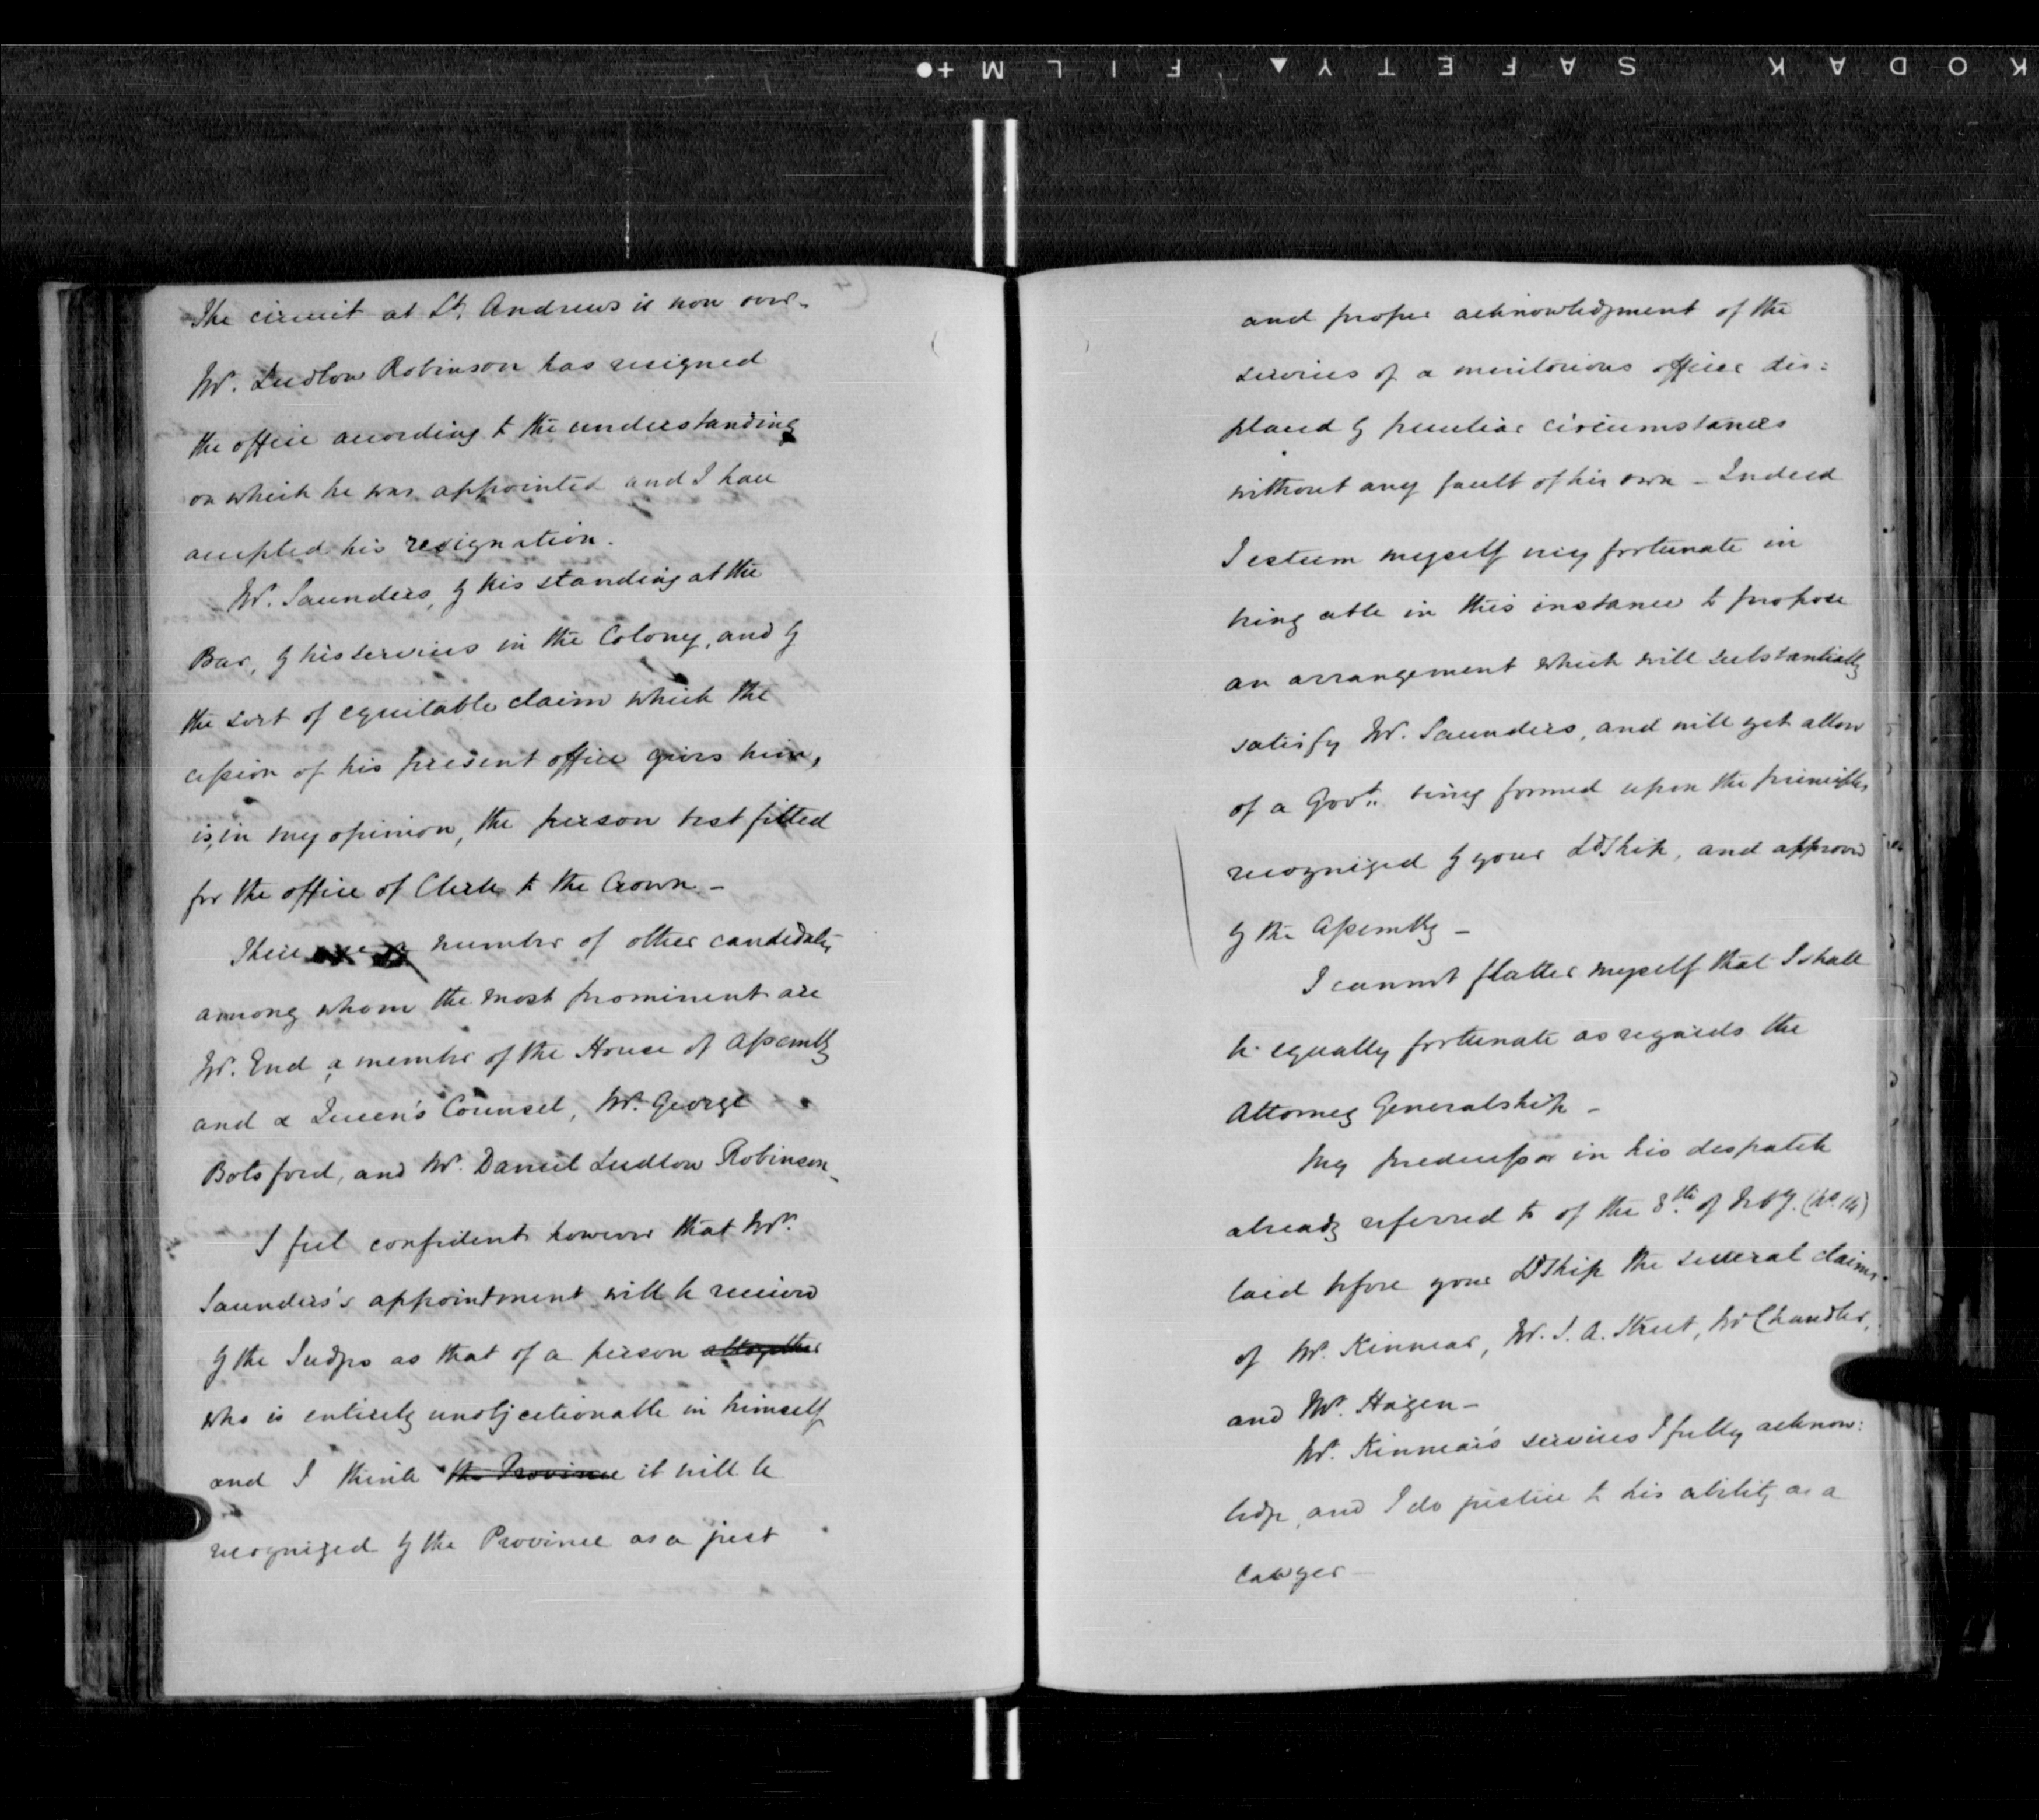 KODAK SAFETY FILM
The circuit at St. Andrews is now over.
Mr. Ludlow Robinson has resigned
the office according to the understanding
on which he was appointed and I have
accepted his resignation.
Mr. Saunders, by his standing at the
Bar, by his services in the Colony, and by
the sort of equitable claim which the
cession of his present office gives him,
is, in my opinion, the person best fitted
for the office of Clerk to the Crown -
There are a number of other candidates
among whom the most prominent are
Mr. End a member of the House of Assembly
and a Queen's Counsel, Mr. George
Botsford, and Mr. Daniel Ludlow Robinson.
I feel confident however that Mr.
Saunders's appointment will be received
by the Judges as that of a person altogether
who is entirely unobjectionable in himself
and I think the Province it will be
recognized by the Province as a just
and proper acknowledgment of the
services of a meritorious officer dis:
placed by peculiar circumstances
without any fault of his own - Indeed
I esteem myself very fortunate in
being able in this instance to propose
an arrangement which will substantially
satisfy Mr. Saunders, and will yet allow
of a Govt. being formed upon the principles
recognized by your LdShip, and approved
by the Assembly -
I cannot flatter myself that I shall
be equally fortunate as regards the
Attorney Generalship -
My predecessor in his despatch
already referred to of the 8th of (No. 14)
laid before your LdShip the several claims
of Mr. Kinnear, Mr. J. A. Street, Mr Chandler,
and Mr. Hazen -
Mr. Kinnear's services I fully acknow:
ledge, and I do justice to his ability as a
Lawyer -